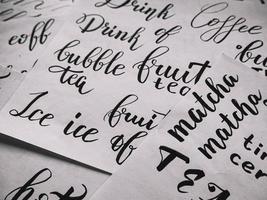 Drink
Drink of
Coffee
coff
bubble fruit
tea tea
fruit
Ice ice of
matcha
matcha
TEA